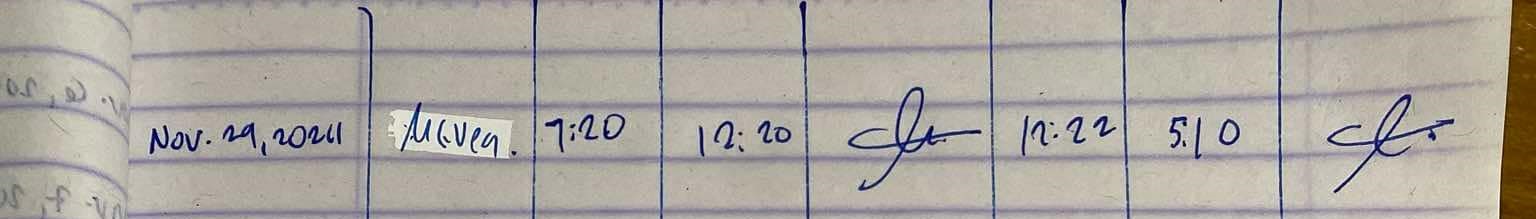 Nov. 29, 2024 Mcvea. 7:20 12:20 12:22 5:10